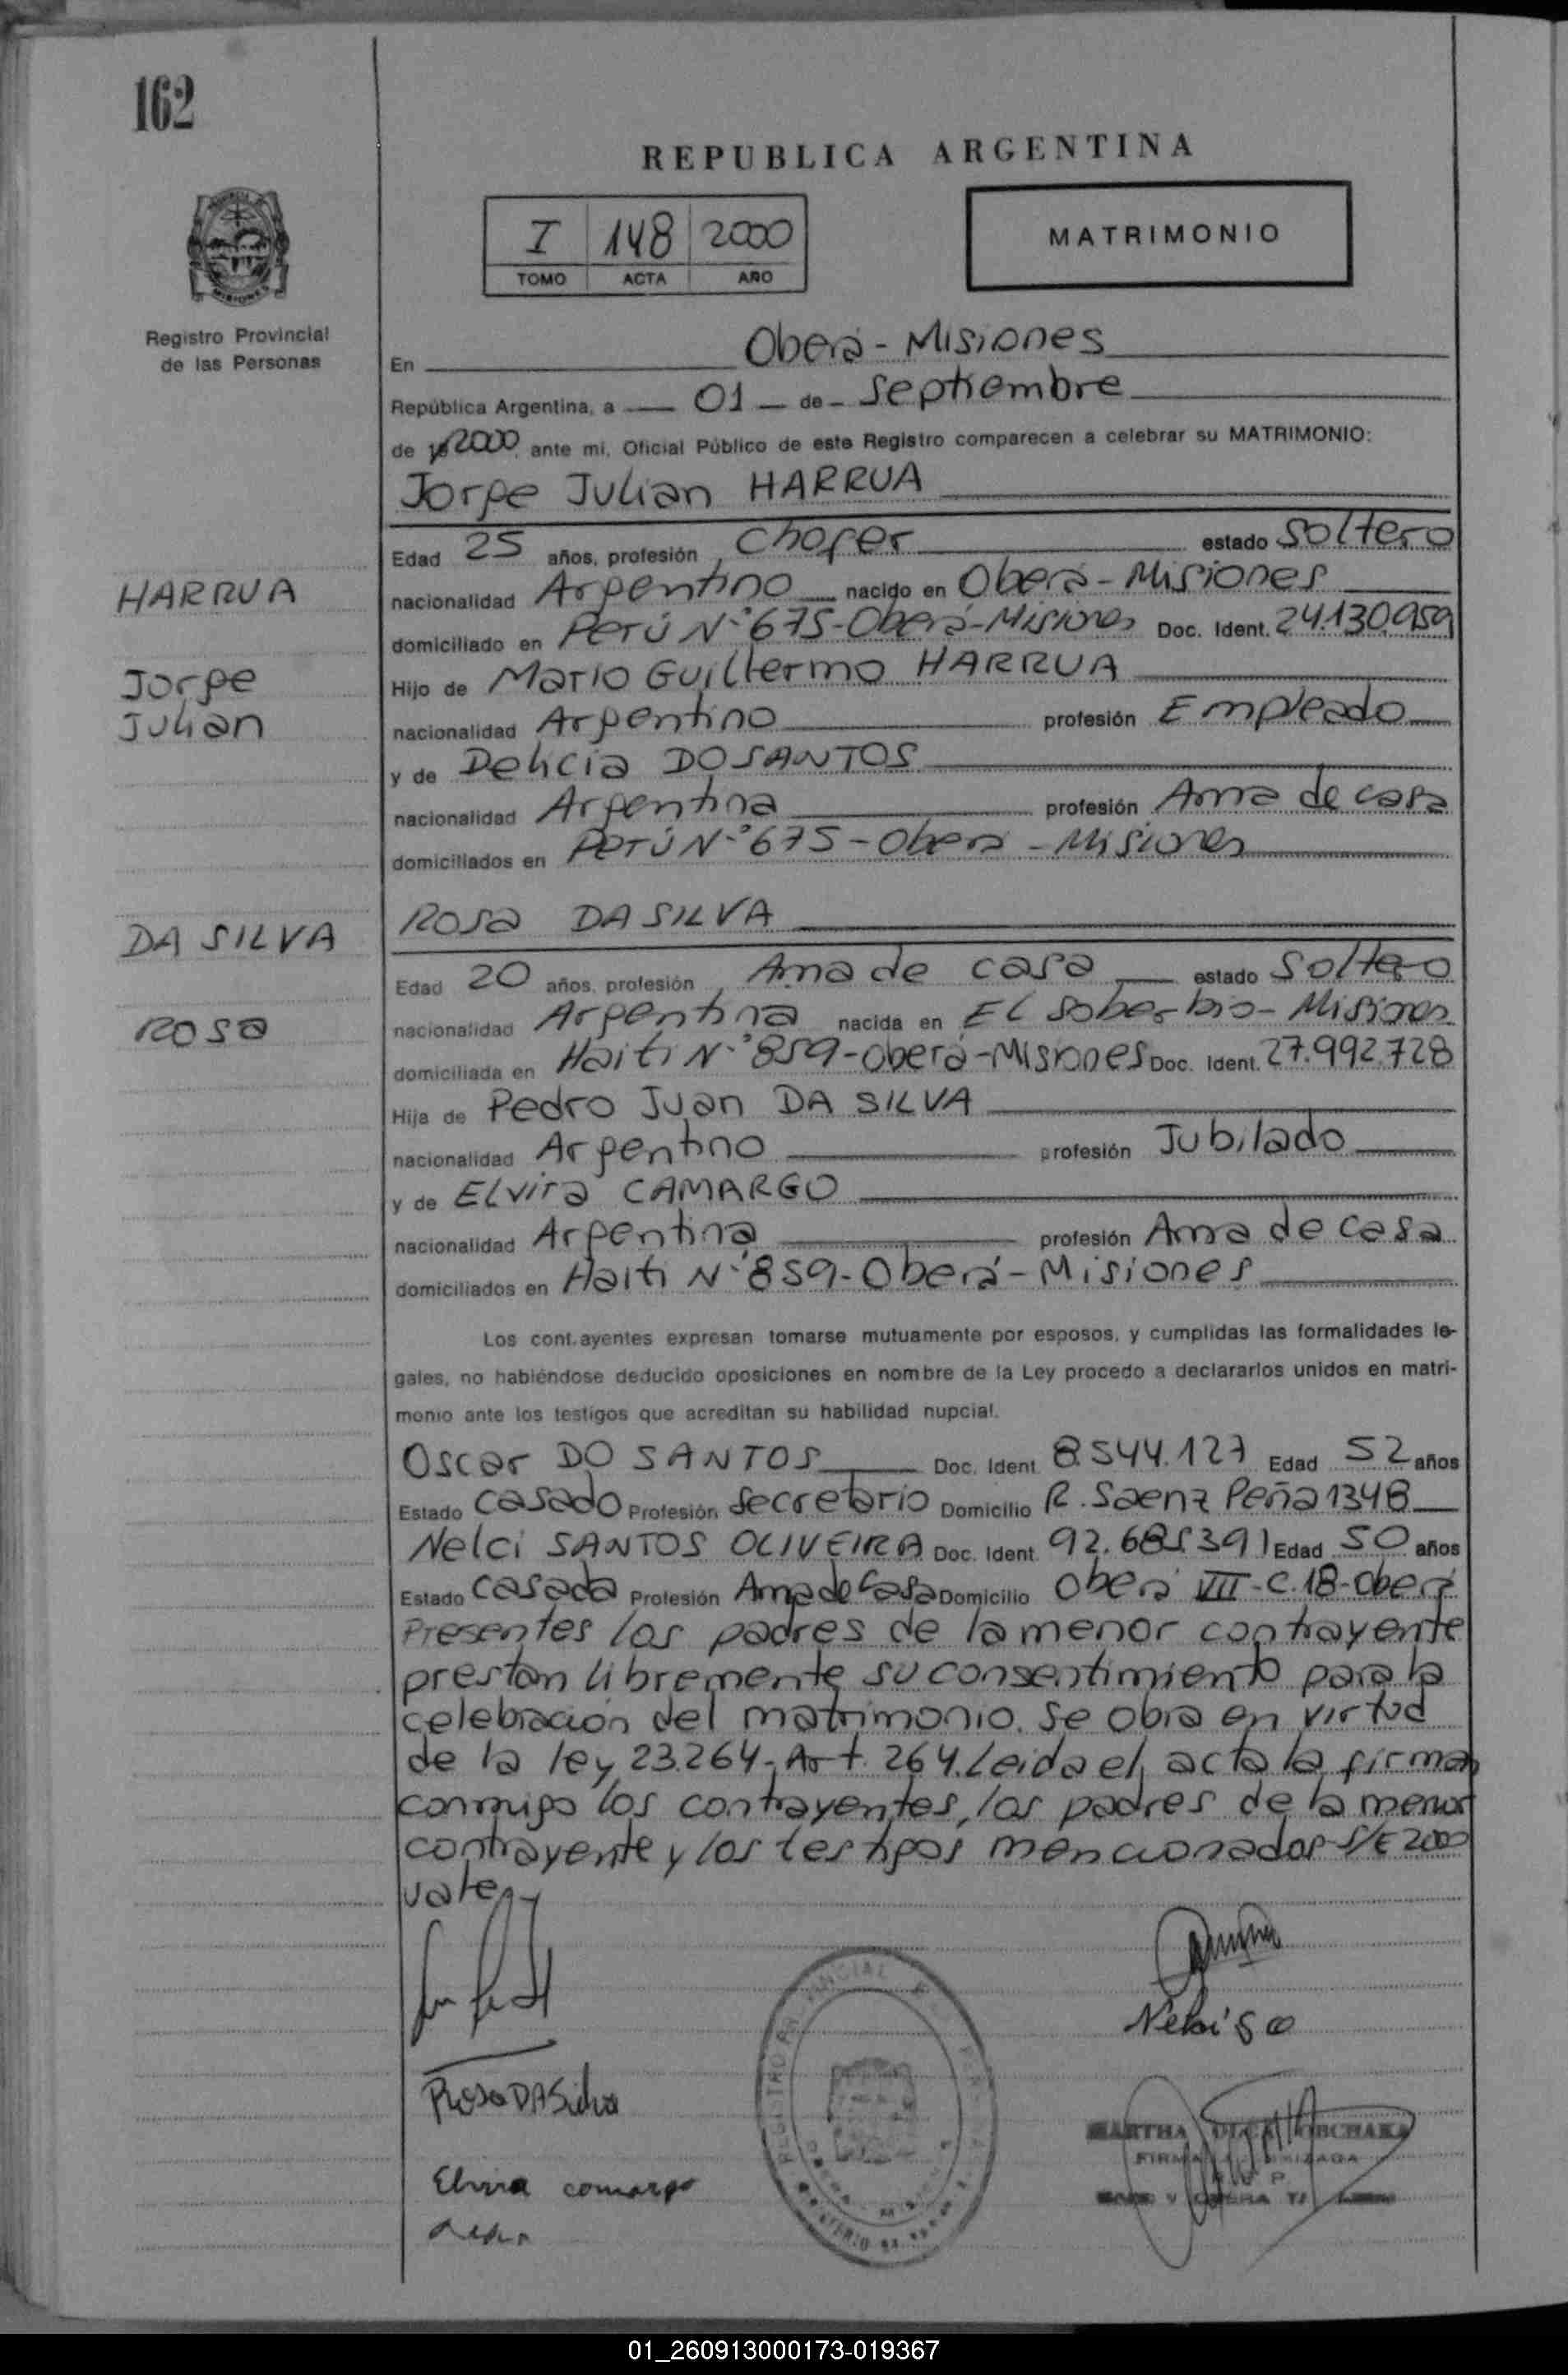 162
REPUBLICA ARGENTINA
I 148 2000
TOMO ACTA AÑO
MATRIMONIO
Registro Provincial
de las Personas
En Oberá - Misiones
República Argentina, a 01 de Septiembre
de 2000, ante mi, Oficial Público de este Registro comparecen a celebrar su MATRIMONIO:
Jorge Julian HARRUA
Edad 25 años, profesión Chofer estado Soltero
HARRUA
nacionalidad Argentino nacido en Oberá - Misiones
domiciliado en Perú N° 675 - Oberá - Misiones Doc. Ident. 24.130.959
Jorge
Julian
Hijo de Mario Guillermo HARRUA
nacionalidad Argentino profesión Empleado
y de Delicia DO SANTOS
nacionalidad Argentina profesión Ama de casa
domiciliados en Perú N° 675 - Oberá - Misiones
DA SILVA
Rosa DA SILVA
Edad 20 años, profesión Ama de casa estado Soltero
Rosa
nacionalidad Argentina nacida en El Soberbio - Misiones
domiciliada en Haiti N° 859 - Oberá - Misiones Doc. Ident. 27.992.728
Hija de Pedro Juan DA SILVA
nacionalidad Argentino profesión Jubilado
y de Elvira CAMARGO
nacionalidad Argentina profesión Ama de casa
domiciliados en Haiti N° 859 - Oberá - Misiones
Los cont.ayentes expresan tomarse mutuamente por esposos, y cumplidas las formalidades le-
gales, no habiéndose deducido oposiciones en nombre de la Ley procedo a declararlos unidos en matri-
monio ante los testigos que acreditan su habilidad nupcial.
Oscar DO SANTOS Doc. Ident. 8.544.127 Edad 52 años
Estado Casado Profesión Secretario Domicilio R. Saenz Peña 1348
Nelci SANTOS OLIVEIRA Doc. Ident. 92.685.391 Edad 50 años
Estado Casada Profesión Ama de Casa Domicilio Oberá VIII - C. 18 - Oberá
Presentes los padres de la menor contrayente
prestan libremente su consentimiento para la
celebración del matrimonio. Se obra en virtud
de la ley 23.264 - Art. 264. Leida el acta la firman
conmigo los contrayentes, los padres de la menor
contrayente y los testigos mencionados - S/E 2000
vale
Rosa DA Silva
Elvira comargo
MARTHA
01_260913000173-019367